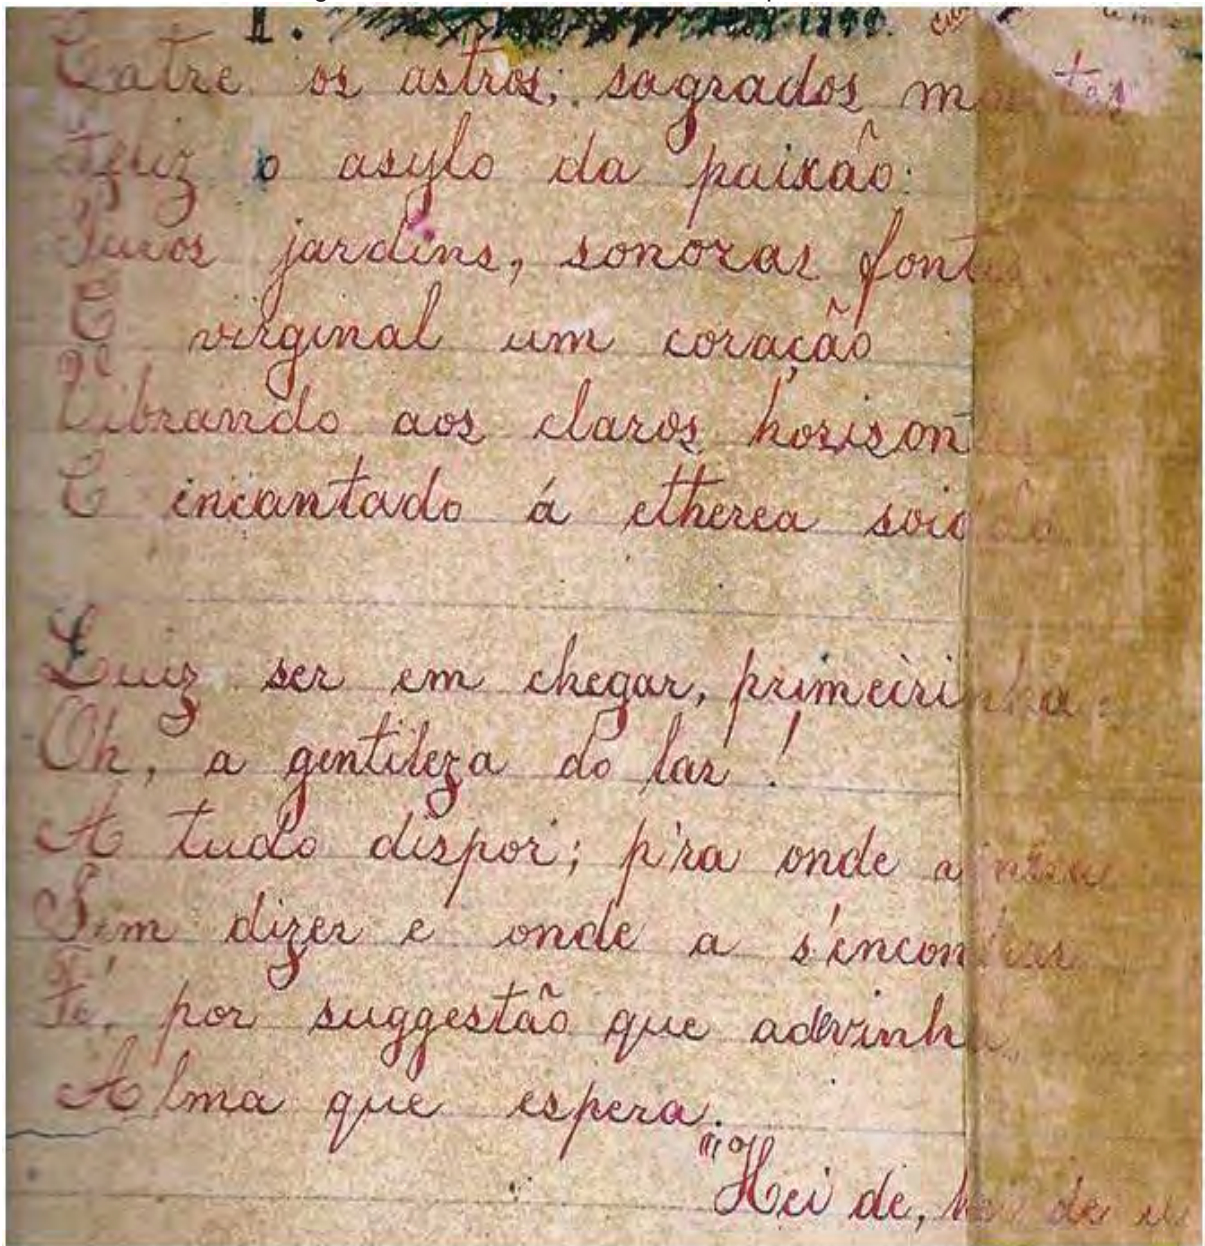 I.
Entre os astros; sagrados montes
Feliz o asylo da paixão:
Puros jardins, sonoras fontes,
E virginal um coração
Vibrando aos claros horisontes
E incantado á etherea soidão.
Luiz ser em chegar, primeirinha:
Oh, a gentileza do lar!
A tudo dispor; p'ra onde a
Sem dizer e onde a s'encontrar
Fé, por suggestão que adevinha,
Alma que espera.
"Hei de, hei de